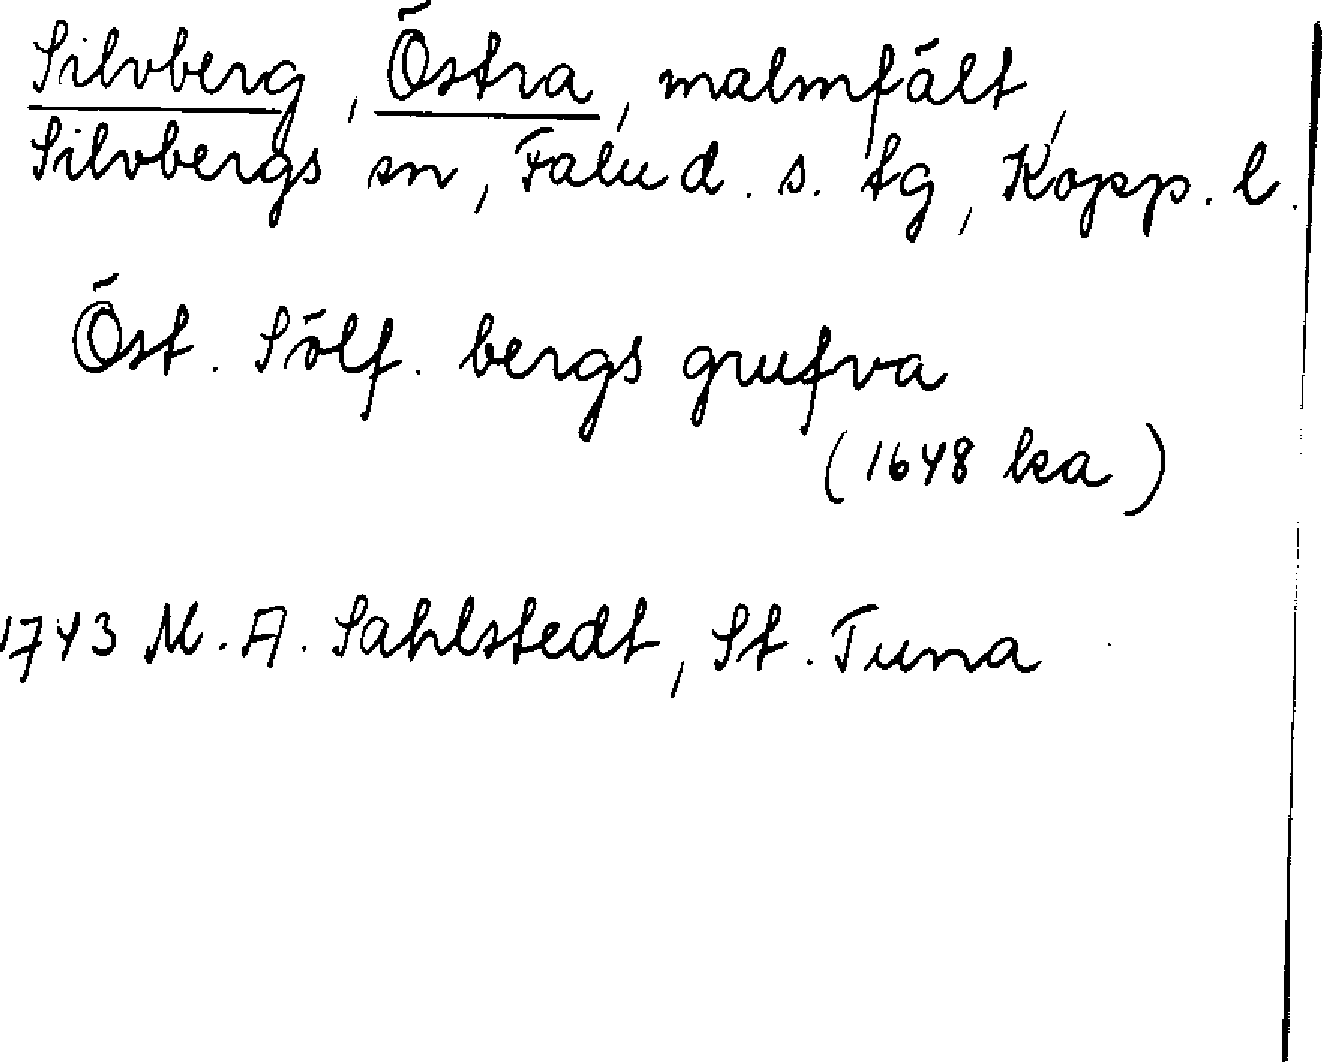 Silvberg, Östra, malmfält,
Silvbergs sn, Falu d. s. tg, Kopp. l.
Öst. Sölf. bergs grufva
(1648 ka)
1743 M. A. Sahlstedt, St. Tuna